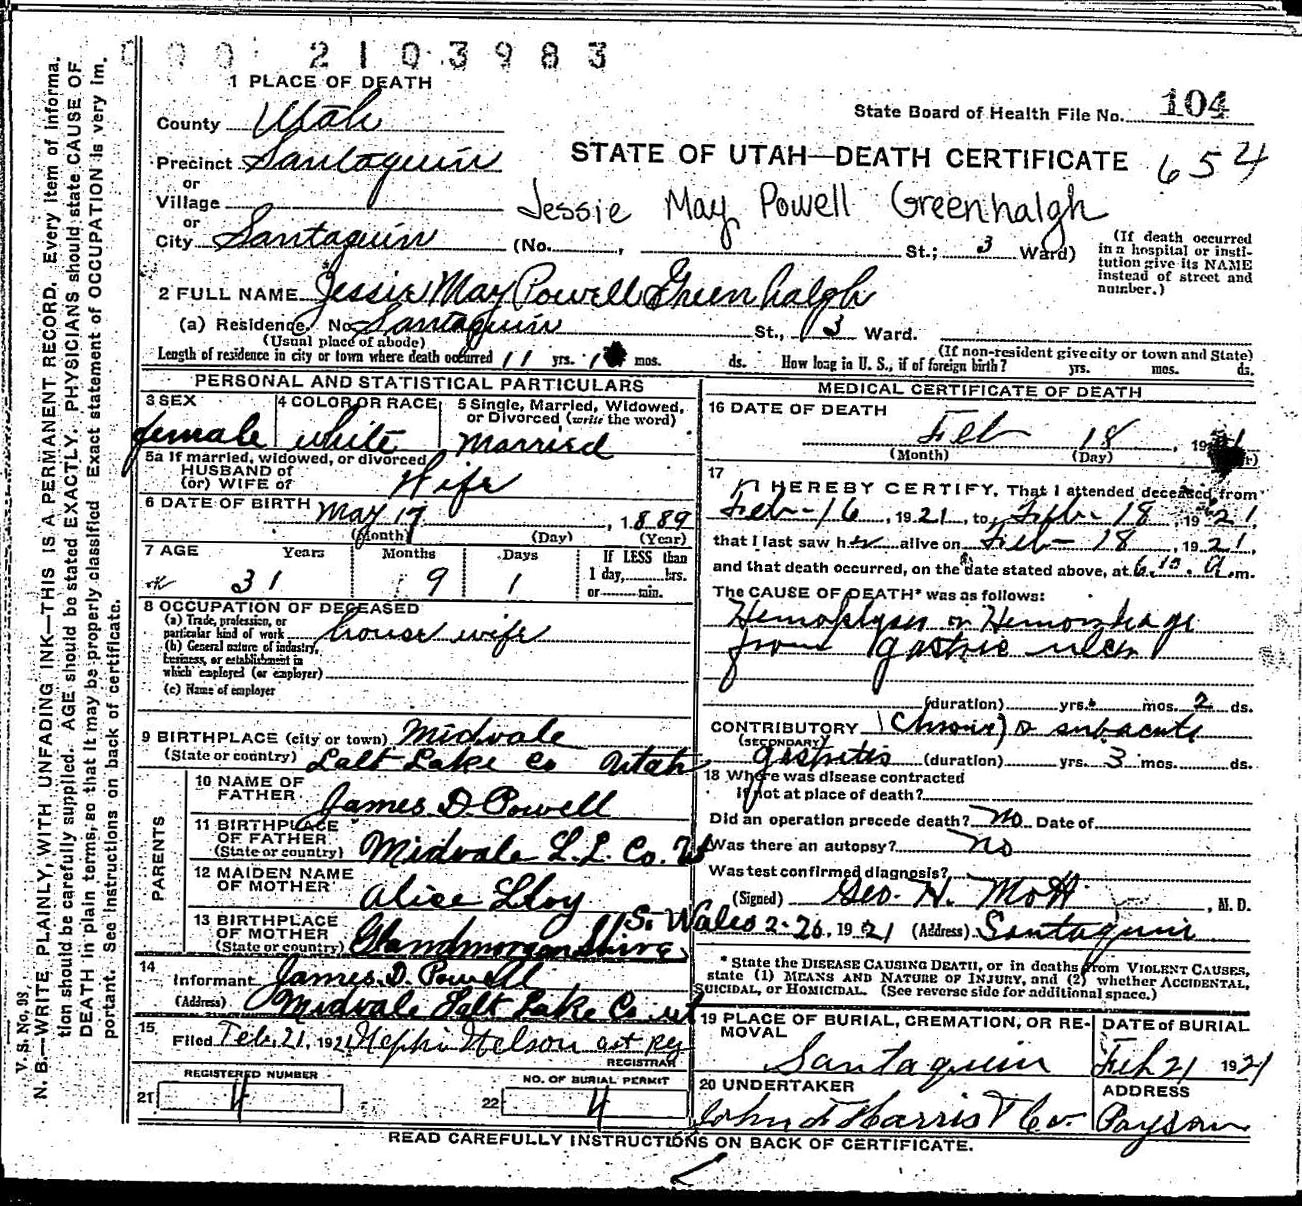 2103983
1 PLACE OF DEATH
State Board of Health File No. 104
County Utah
STATE OF UTAH—DEATH CERTIFICATE 654
Precinct Santaquin
or
Village
Jessie May Powell Greenhalgh
or
City Santaquin (No. , St.; 3 Ward)
(If death occurred in a hospital or insti-
tution give its NAME
instead of street and
number.)
2 FULL NAME Jessie May Powell Greenhalgh
(a) Residence, No. Santaquin St., 3 Ward.
(Usual place of abode)
(If non-resident give city or town and State)
Length of residence in city or town where death occurred 11 yrs. mos. ds. How long in U. S., if of foreign birth? yrs. mos. ds.
PERSONAL AND STATISTICAL PARTICULARS
3 SEX
female
4 COLOR OR RACE
white
5 Single, Married, Widowed,
or Divorced (write the word)
Married
5a If married, widowed, or divorced
HUSBAND of
(or) WIFE of Wife
6 DATE OF BIRTH May 17, 1889
(Month) (Day) (Year)
7 AGE Years Months Days If LESS than
31 9 1 1 day, hrs.
or min.
8 OCCUPATION OF DECEASED
(a) Trade, profession, or
particular kind of work house wife
(b) General nature of industry,
business, or establishment in
which employed (or employer)
(c) Name of employer
9 BIRTHPLACE (city or town) Midvale
(State or country) Salt Lake Co Utah
PARENTS
10 NAME OF
FATHER James D. Powell
11 BIRTHPLACE
OF FATHER
(State or country) Midvale S. L. Co. Ut
12 MAIDEN NAME
OF MOTHER Alice Lloy
13 BIRTHPLACE
OF MOTHER
(State or country) Glandmorganshire S. Wales
14
Informant James D. Powell
(Address) Midvale Salt Lake Co. ut
15
Filed Feb. 21, 1921 Nephi Nelson ast Reg
REGISTRAR
REGISTERED NUMBER
21 4
NO. OF BURIAL PERMIT
22 4
MEDICAL CERTIFICATE OF DEATH
16 DATE OF DEATH
Feb 18, 19
(Month) (Day)
17
I HEREBY CERTIFY, That I attended deceased from
Feb-16, 1921, to Feb-18, 1921
that I last saw her alive on Feb-18, 1921,
and that death occurred, on the date stated above, at 6.10. a.m.
The CAUSE OF DEATH* was as follows:
Hemoptysis or Hemorrhage
from gastric ulcer
(duration) yrs. mos. 2 ds.
CONTRIBUTORY (Chronic) or subacute
(SECONDARY)
gastritis (duration) yrs. 3 mos. ds.
18 Where was disease contracted
if not at place of death?
Did an operation precede death? No Date of
Was there an autopsy? No
Was test confirmed diagnosis?
(Signed) Geo. H. Mott, M. D.
2-26, 1921 (Address) Santaquin
* State the DISEASE CAUSING DEATH, or in deaths from VIOLENT CAUSES,
state (1) MEANS AND NATURE OF INJURY, and (2) whether ACCIDENTAL,
SUICIDAL, or HOMICIDAL. (See reverse side for additional space.)
19 PLACE OF BURIAL, CREMATION, OR RE-
MOVAL
Santaquin
DATE of BURIAL
Feb 21 1921
20 UNDERTAKER
John F Harris Co.
ADDRESS
Payson
READ CAREFULLY INSTRUCTIONS ON BACK OF CERTIFICATE.
V. S. No. 98.
N. B.—WRITE PLAINLY, WITH UNFADING INK—THIS IS A PERMANENT RECORD. Every item of informa-
tion should be carefully supplied. AGE should be stated EXACTLY. PHYSICIANS should state CAUSE OF
DEATH in plain terms, so that it may be properly classified Exact statement of OCCUPATION is very im-
portant. See instructions on back of certificate.